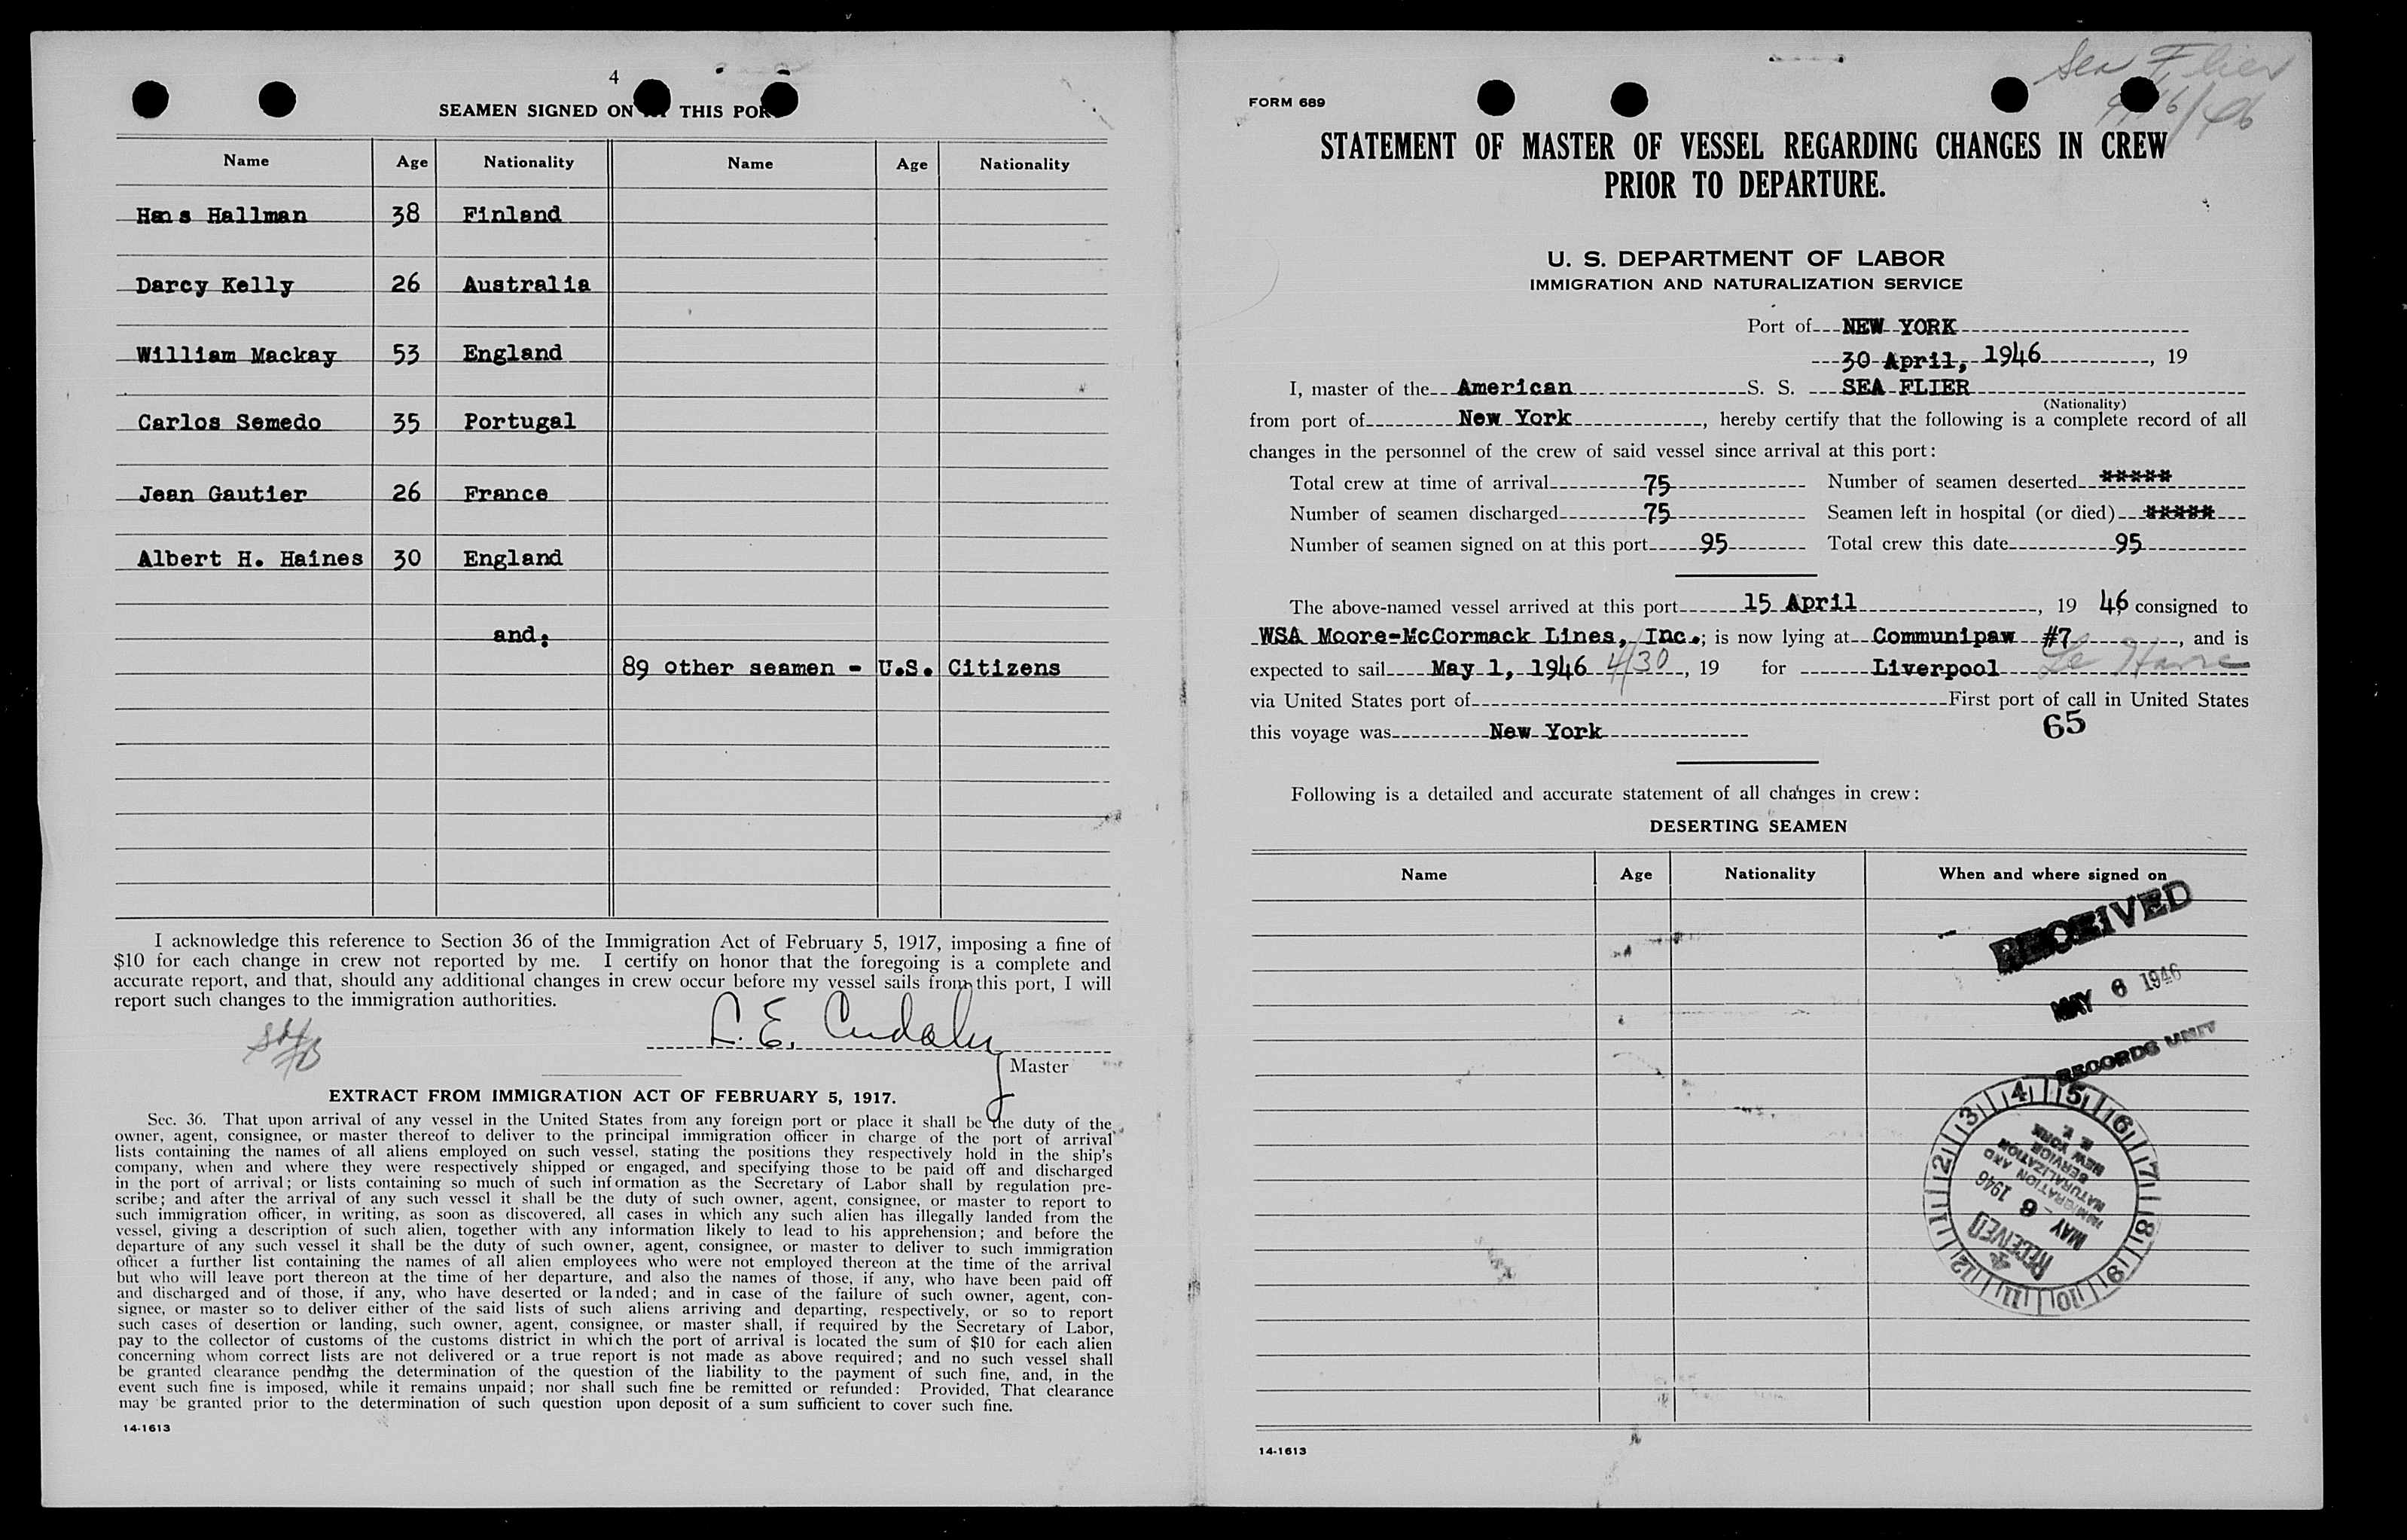 4
SEAMEN SIGNED ON THIS PORT
Name Age Nationality Name Age Nationality
Hans Hallman 38 Finland
Darcy Kelly 26 Australia
William Mackay 53 England
Carlos Semedo 35 Portugal
Jean Gautier 26 France
Albert H. Haines 30 England
and:
89 other seamen - U.S. Citizens
I acknowledge this reference to Section 36 of the Immigration Act of February 5, 1917, imposing a fine of
$10 for each change in crew not reported by me. I certify on honor that the foregoing is a complete and
accurate report, and that, should any additional changes in crew occur before my vessel sails from this port, I will
report such changes to the immigration authorities.
Master
EXTRACT FROM IMMIGRATION ACT OF FEBRUARY 5, 1917.
Sec. 36. That upon arrival of any vessel in the United States from any foreign port or place it shall be the duty of the
owner, agent, consignee, or master thereof to deliver to the principal immigration officer in charge of the port of arrival
lists containing the names of all aliens employed on such vessel, stating the positions they respectively hold in the ship's
company, when and where they were respectively shipped or engaged, and specifying those to be paid off and discharged
in the port of arrival; or lists containing so much of such information as the Secretary of Labor shall by regulation pre-
scribe; and after the arrival of any such vessel it shall be the duty of such owner, agent, consignee, or master to report to
such immigration officer, in writing, as soon as discovered, all cases in which any such alien has illegally landed from the
vessel, giving a description of such alien, together with any information likely to lead to his apprehension; and before the
departure of any such vessel it shall be the duty of such owner, agent, consignee, or master to deliver to such immigration
officer a further list containing the names of all alien employees who were not employed thereon at the time of the arrival
but who will leave port thereon at the time of her departure, and also the names of those, if any, who have been paid off
and discharged and of those, if any, who have deserted or landed; and in case of the failure of such owner, agent, con-
signee, or master so to deliver either of the said lists of such aliens arriving and departing, respectively, or so to report
such cases of desertion or landing, such owner, agent, consignee, or master shall, if required by the Secretary of Labor,
pay to the collector of customs of the customs district in which the port of arrival is located the sum of $10 for each alien
concerning whom correct lists are not delivered or a true report is not made as above required; and no such vessel shall
be granted clearance pending the determination of the question of the liability to the payment of such fine, and, in the
event such fine is imposed, while it remains unpaid; nor shall such fine be remitted or refunded: Provided, That clearance
may be granted prior to the determination of such question upon deposit of a sum sufficient to cover such fine.
14-1613
Sea Flier
FORM 689
STATEMENT OF MASTER OF VESSEL REGARDING CHANGES IN CREW
PRIOR TO DEPARTURE.
U. S. DEPARTMENT OF LABOR
IMMIGRATION AND NATURALIZATION SERVICE
Port of NEW YORK
30 April, 1946, 19
I, master of the American S. S. SEA FLIER
(Nationality)
from port of New York, hereby certify that the following is a complete record of all
changes in the personnel of the crew of said vessel since arrival at this port:
Total crew at time of arrival 75 Number of seamen deserted *****
Number of seamen discharged 75 Seamen left in hospital (or died) *****
Number of seamen signed on at this port 95 Total crew this date 95
The above-named vessel arrived at this port 15 April, 19 46 consigned to
WSA Moore-McCormack Lines, Inc.; is now lying at Communipaw #7, and is
expected to sail May 1, 1946 4/30, 19 for Liverpool Le Havre
via United States port of First port of call in United States
this voyage was New York
65
Following is a detailed and accurate statement of all changes in crew:
DESERTING SEAMEN
Name Age Nationality When and where signed on
RECEIVED
MAY 6 1946
RECORDS UNIT
1 2 3 4 5 6 7 8 9 10 11 12
IMMIGRATION AND
NATURALIZATION
SERVICE
NEW YORK
N. Y.
RECEIVED
MAY 6 1946
14-1613